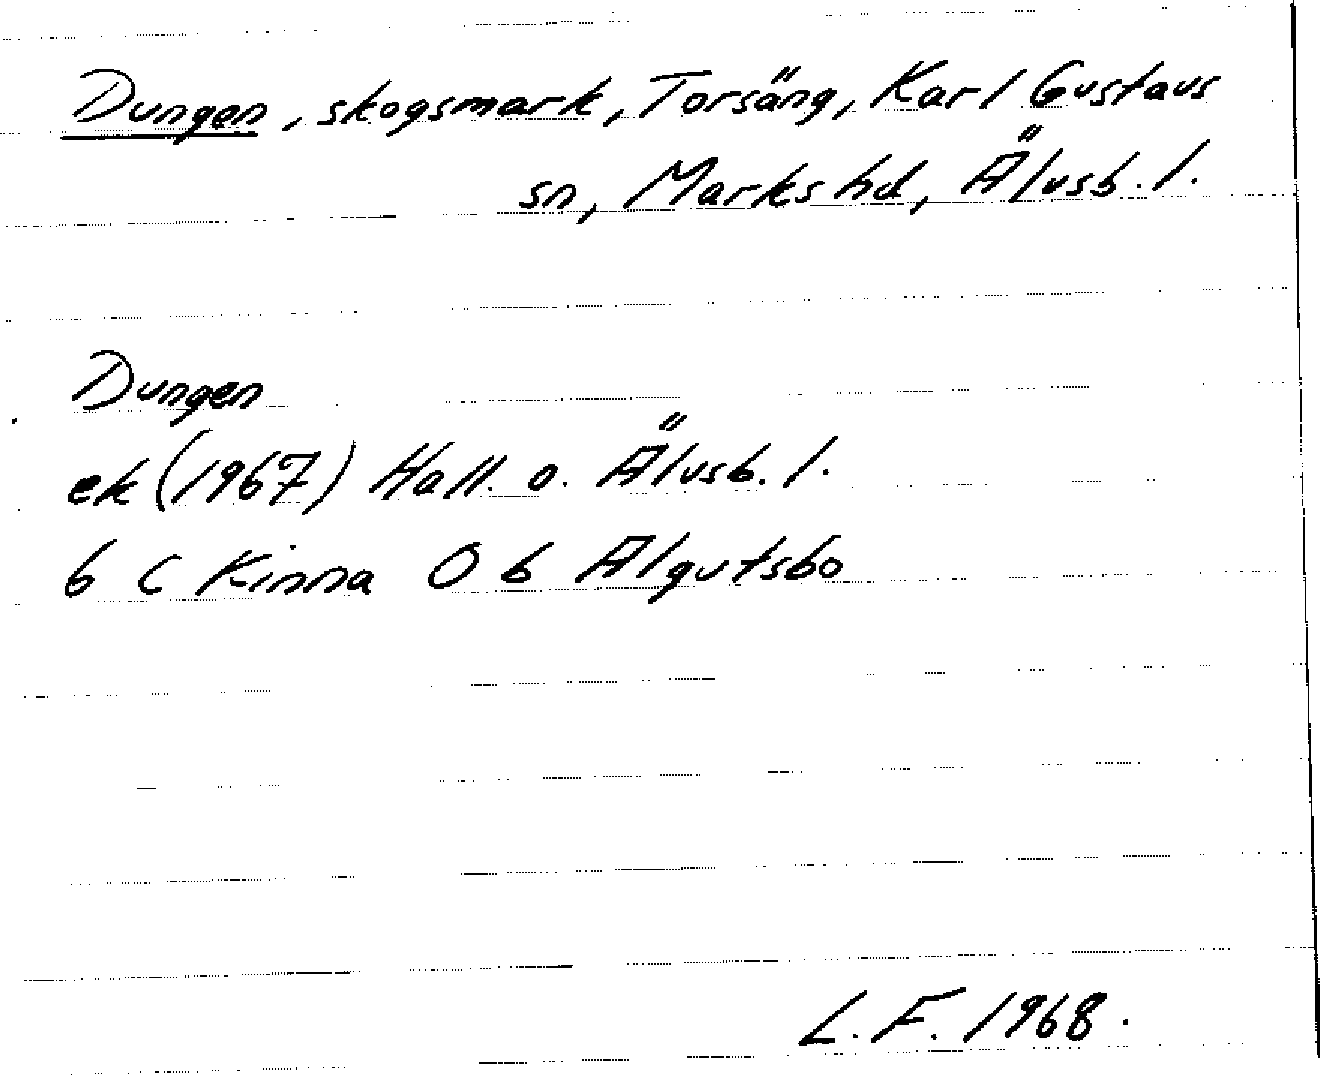 Dungen, skogsmark, Torsäng, Karl Gustavs
sn, Marks hd, Älvsb. l.
Dungen
ek (1967) Hall. o. Älvsb. l.
6 C Kinna O b Älgutsbo
L. F. 1968.